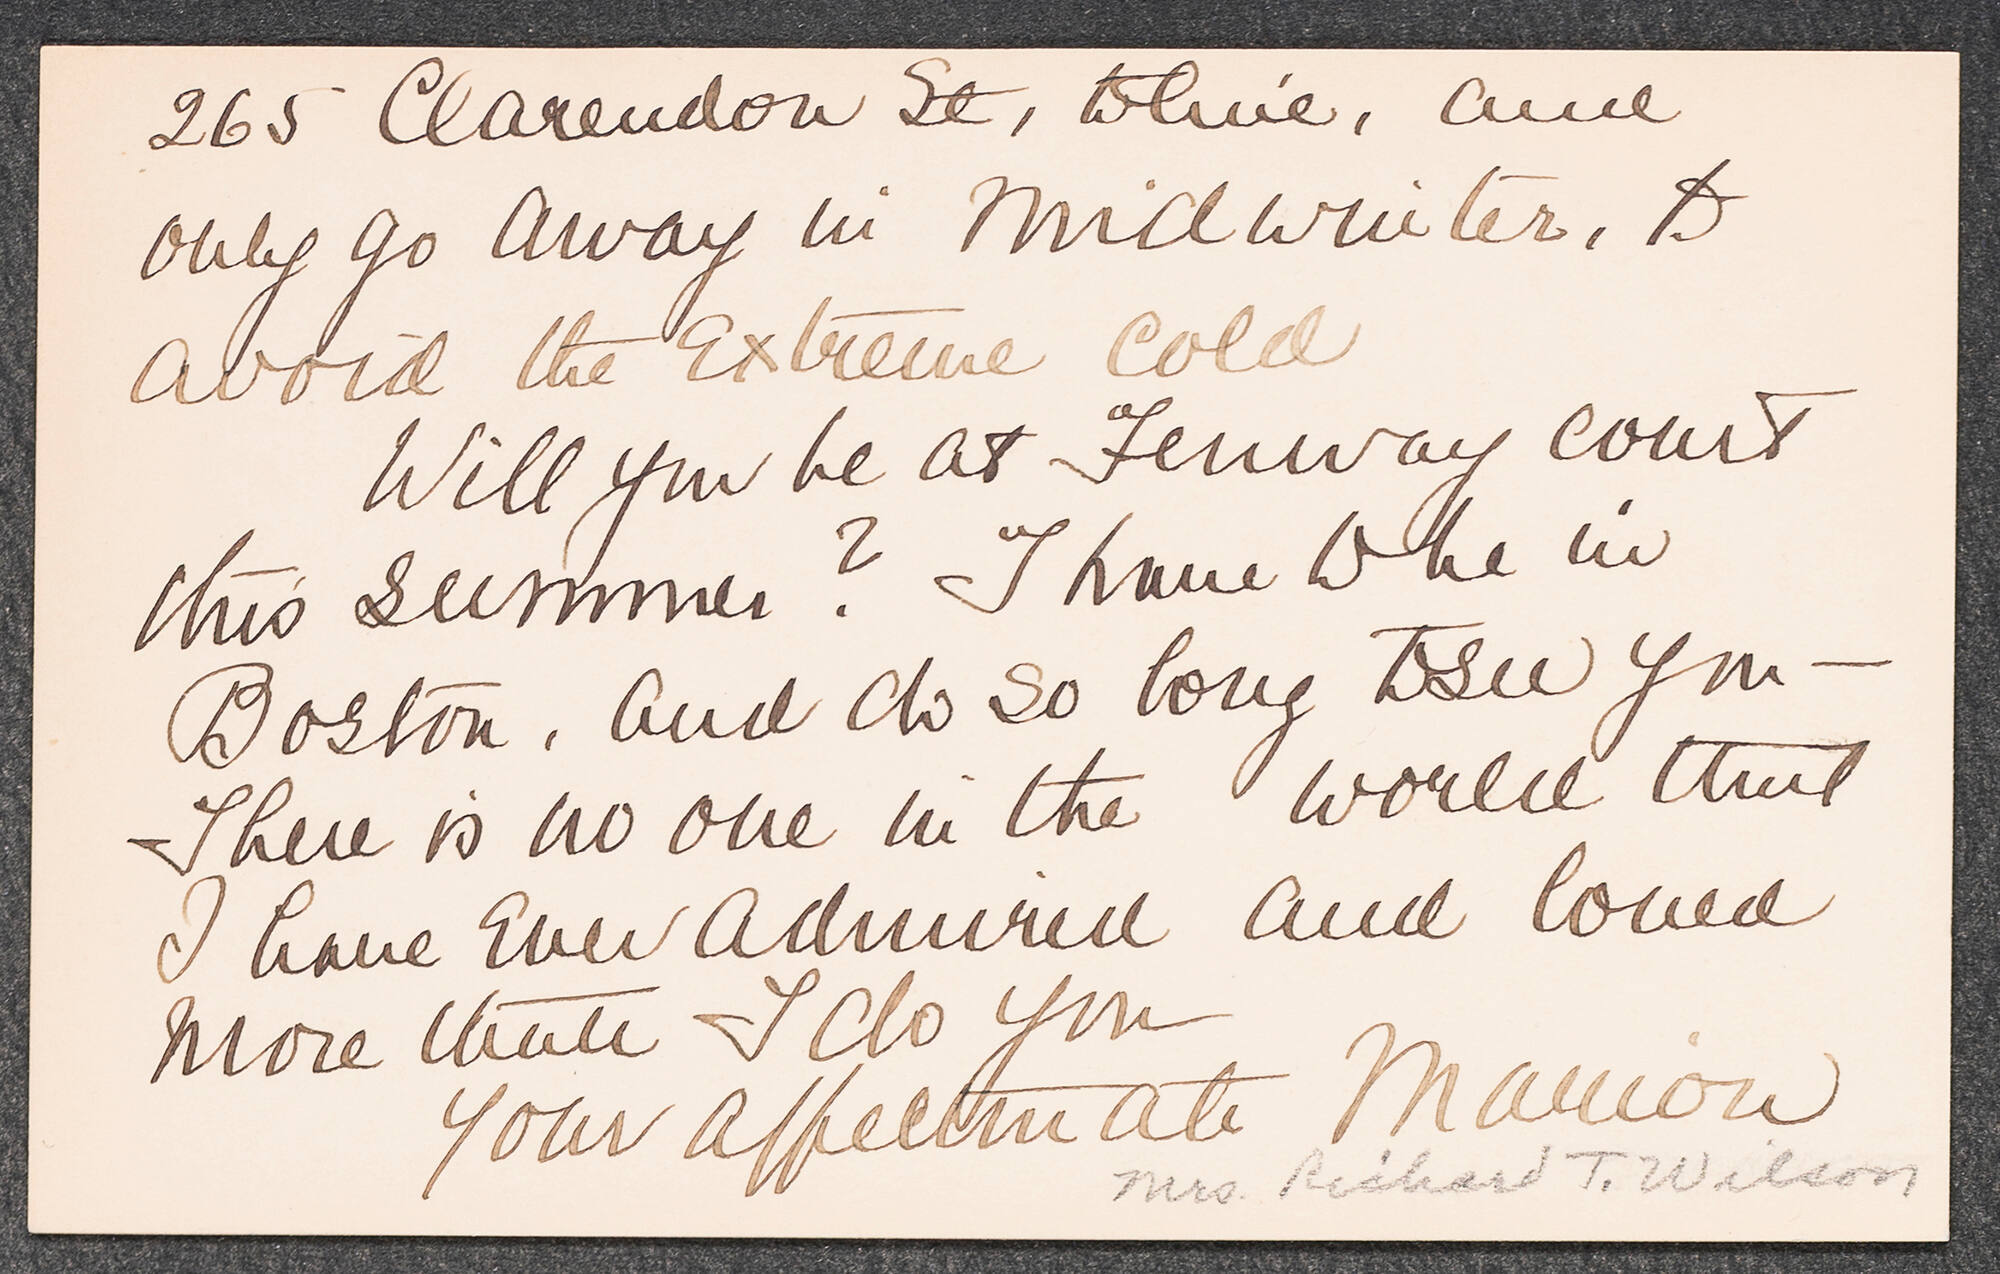 265 Clarendon St, to live, and
only go away in Midwinter, to
avoid the Extreme cold
Will you be at Fenway Court
this summer? I have to be in
Boston, and do so long to see you —
There is no one in the world that
I have Ever admired and loved
more than I do you
Your affectionate Marion
Mrs. Richard T. Wilson